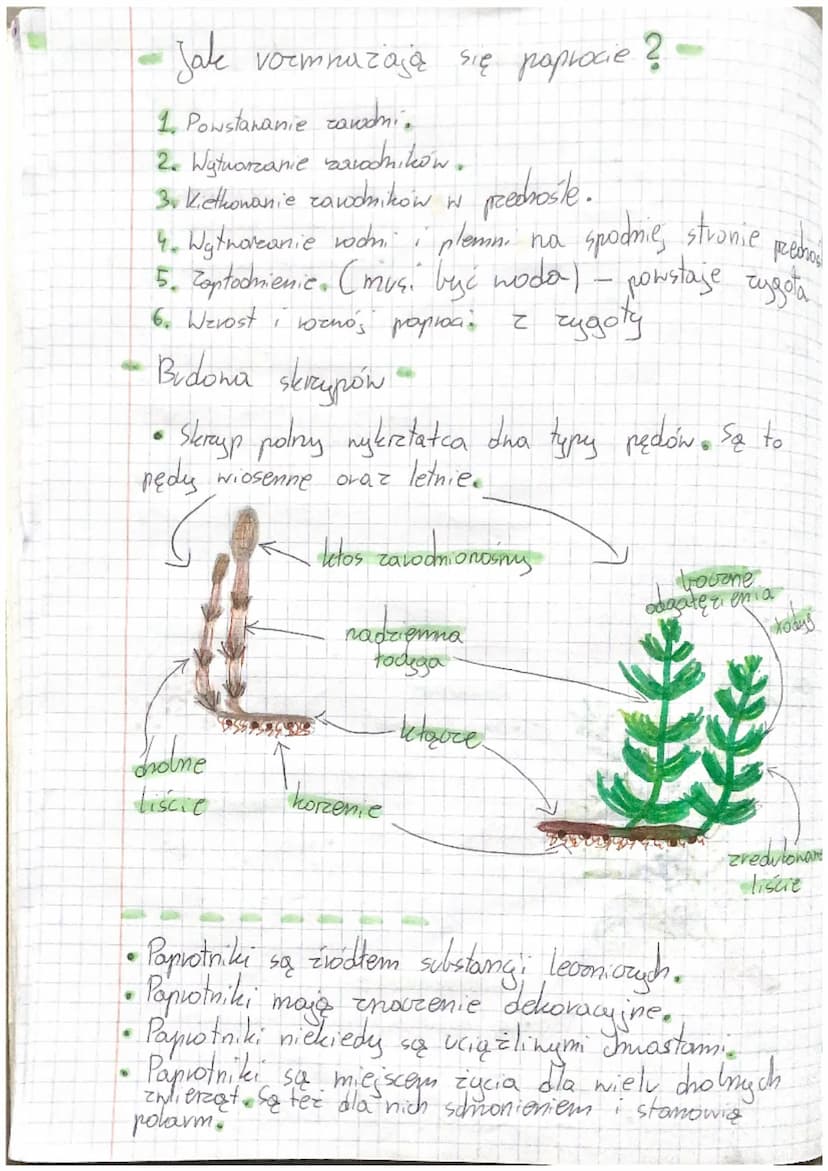 - Jak rozmnażają się paprocie? -
1. Powstawanie zarodni.
2. Wytwarzanie zarodników.
3. Kiełkowanie zarodników w przedrośle.
4. Wytwarzanie rodni i plemni na spodniej stronie przedroś
5. Zapłodnienie. (musi być woda) – powstaje zygota
6. Wzrost i rozwój paproci z zygoty
- Budowa skrzypów -
• Skrzyp polny wykształca dwa typy pędów. Są to
pędy wiosenne oraz letnie.
kłos zarodnionośny
boczne
odgałęzienia
łodyg
nadziemna
łodyga
kłącze
drobne
liście
korzenie
zredukowane
liście
• Paprotniki są źródłem substancji leczniczych.
• Paprotniki mają znaczenie dekoracyjne.
• Paprotniki niekiedy są uciążliwymi chwastami.
• Paprotniki są miejscem życia dla wielu drobnych
zwierząt. Są też dla nich schronieniem i stanowią
pokarm.